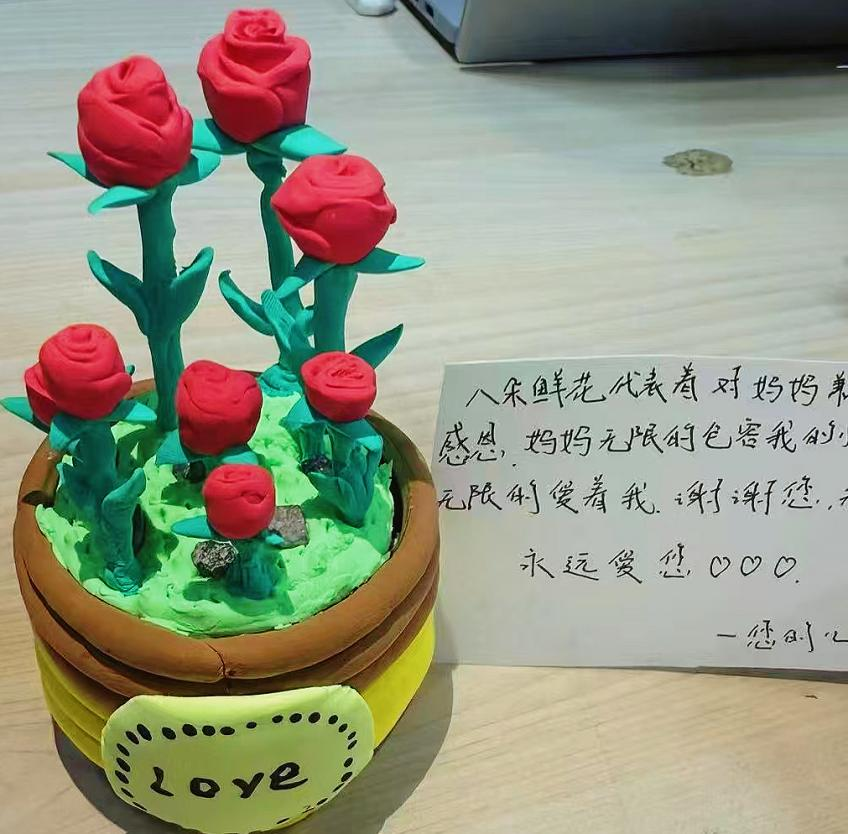 八朵鲜花代表着对妈妈
感恩，妈妈无限的包容我的
无限的爱着我。谢谢您，
永远爱您♡♡♡.
—您的
Love